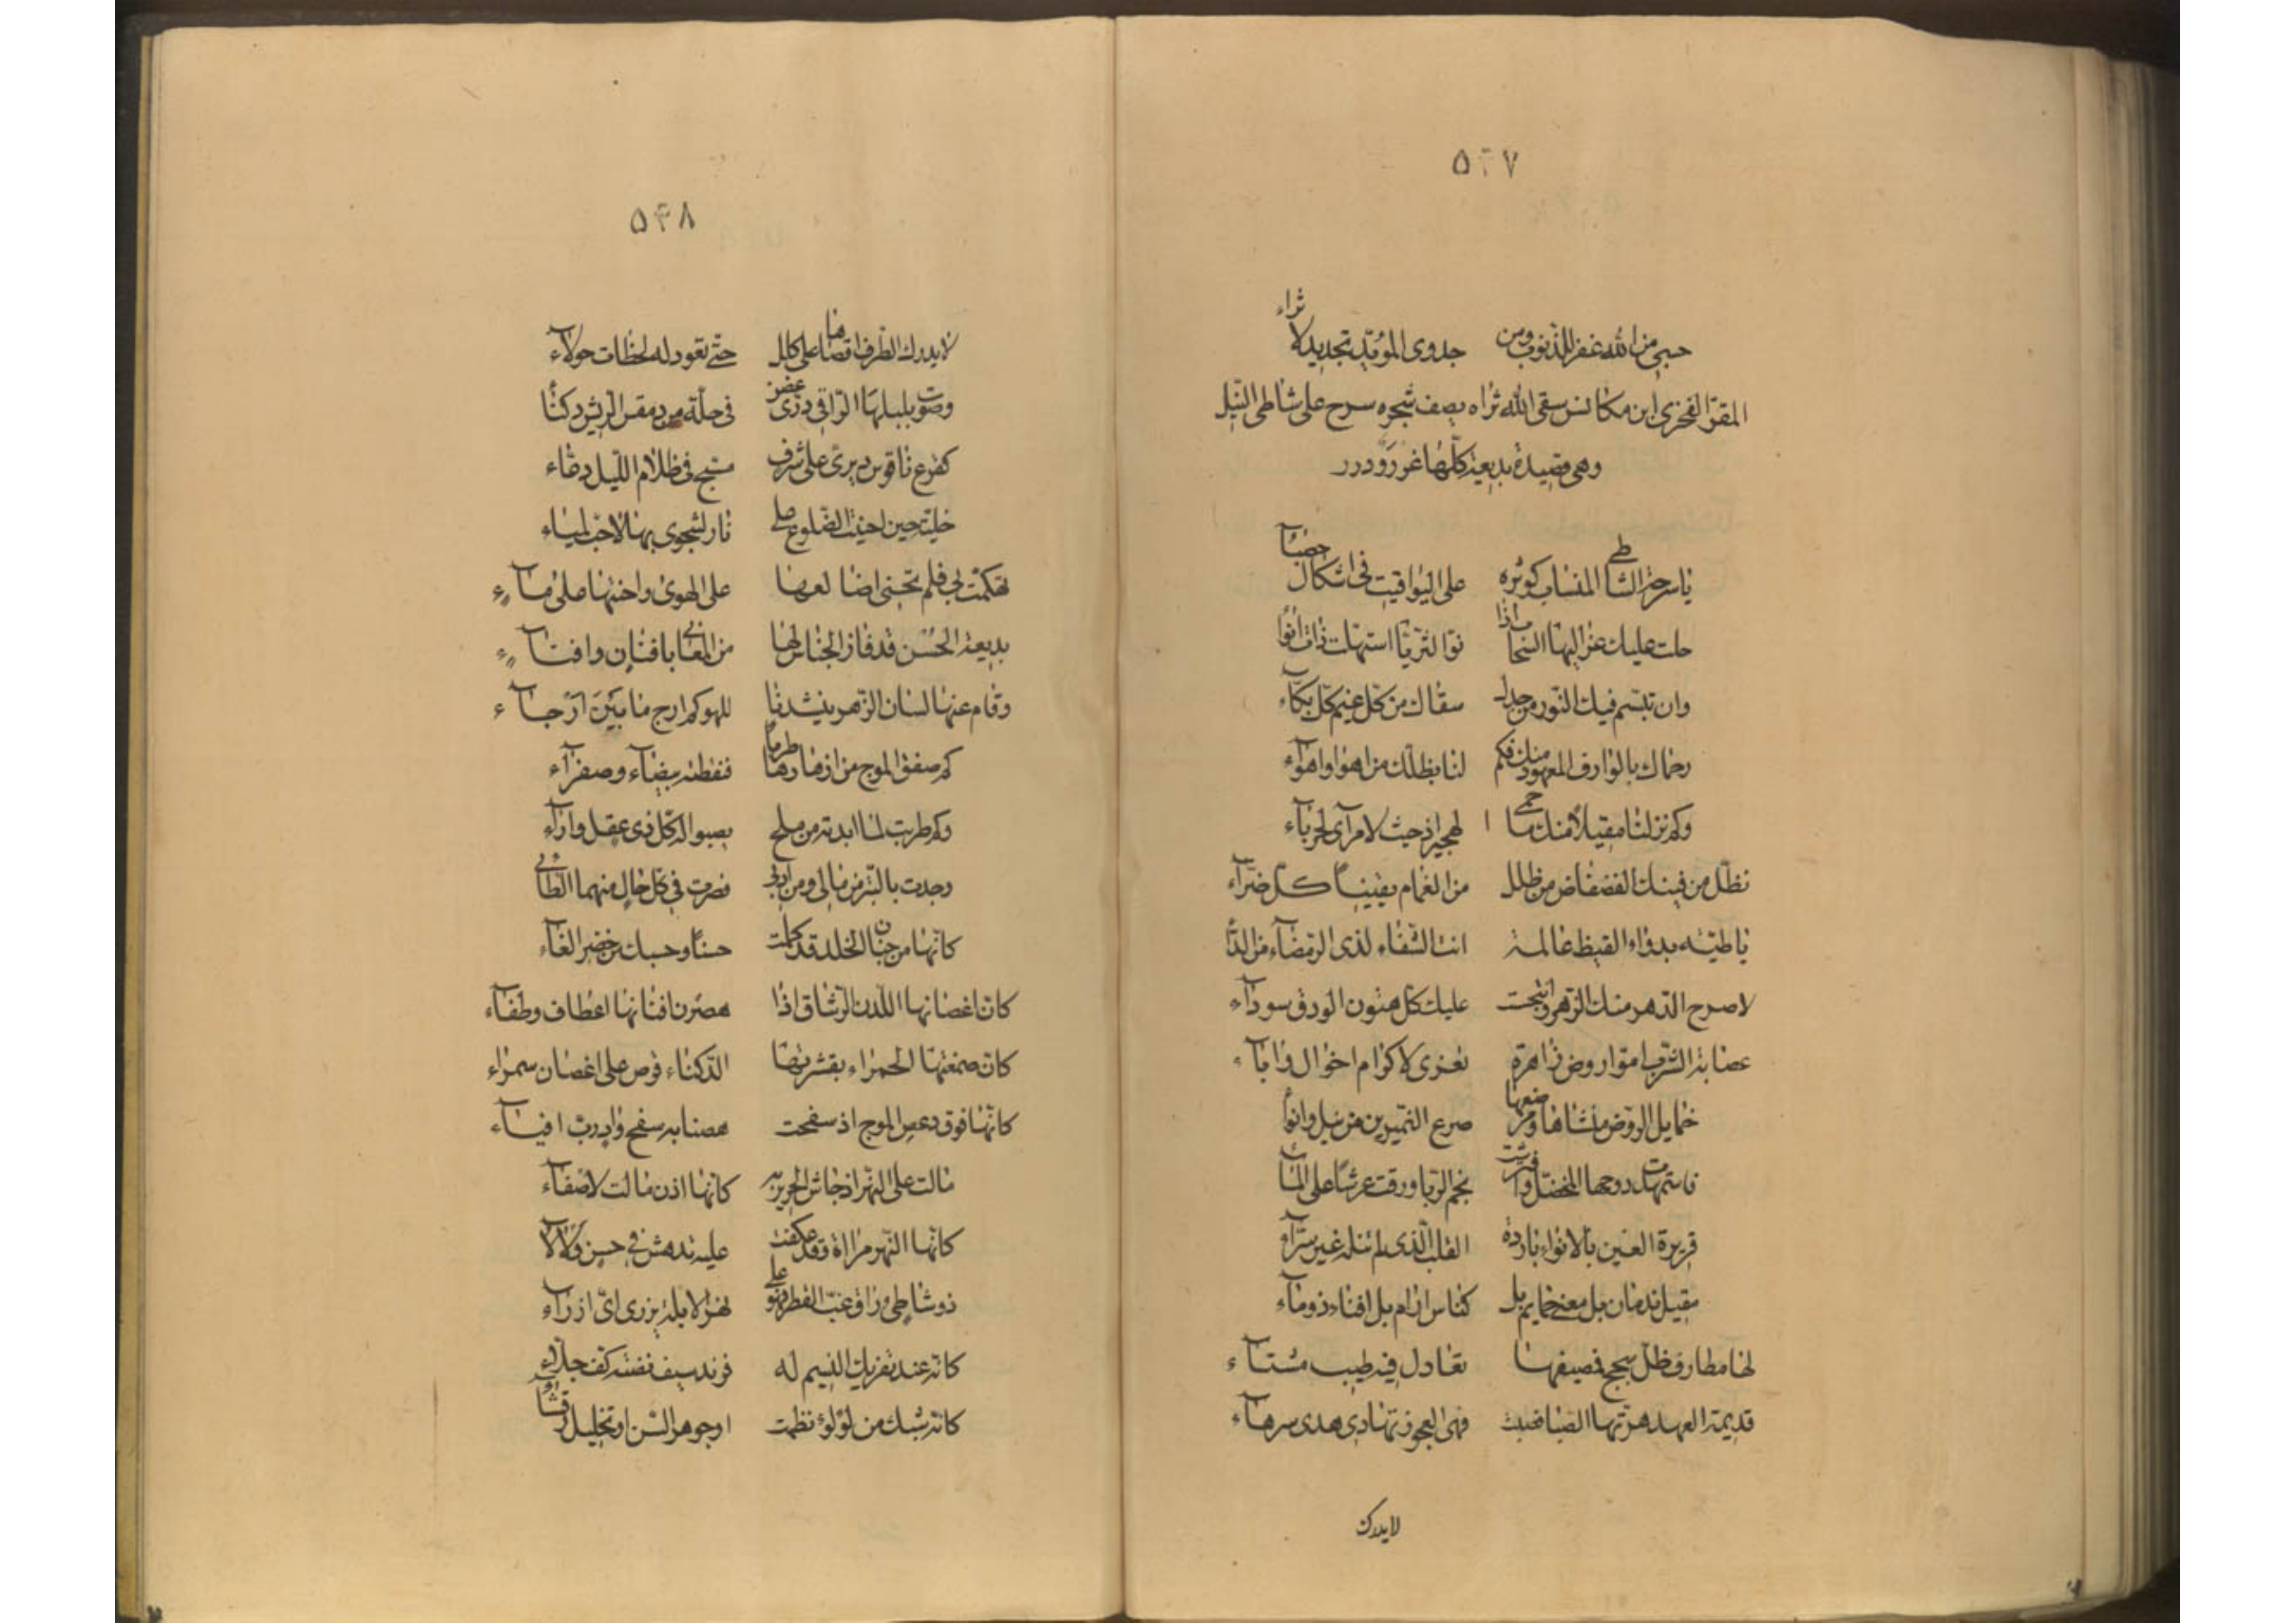 ۵۴۷
حسبي من الله غفر للذنوب ومن جدوى المؤيد تجديد لاثراء
المقر الفخري ابن مكانس سقى الله ثراه يصف شجره سرح على شاطى النيل
وهي قصيدة بديعة كلها غرر ودرر
يا سرحة الشاطي المنساب كوثره على اليواقيت في اشكال حصباء
حلت عليك عزاليها السحاب اذا نوّ الثريا استهلت ذات انواء
وان تبسم فيك النور من جدل سقاك من كل غيم كل بكاء
رحماك بالوارف المعهود منك فكم لنا بظلك من اهوا واهوآء
وكم نزلنا مقيلا منك حمى الهجير اذ حيث لا مرآى لحرباء
نظل من فينك الفضفاض من ظلل من الغمام يقينا كل ضرآء
يا طيبه بدواء القيظ عالمة انت الشفاء لذى الرمضاء من الداء
لاصرح الدهر منك الزهر وانتحبت عليك كل هتون الورق سودآء
عصابة الشرب اموا روض زاهرة تعزى لاكرام اخوال وابآء
خمايل الروض منشاها ومرضعها ضرع النميرين من نيل وانواء
فاستمهدت دوحها المخضل وافترشت نجم الربا ورقت عرشا على الماء
قريرة العين بالانواء باردة القلب الذى لم تنله غير سرآء
مقيل ندمان بل مغنى حمايم بل كناس ارام بل افناء ذوماء
لها مطارف ظل سجسج فصيفها تعادل فيه طيب مشتآء
قديمة العهد هزتها الصبا فصبت فهى العجوز تهادى هدى سرهآء
لا يدرك
۵۴۸
لا يدرك الطرف اقصاها على كلل حتى تعود له لحظات حولآء
وصوت بلبلها الراقي ذرى غصن في حلة من دمقس الريش دكناء
كقرع ناقوس ديرى على شرف مسبح في ظلام الليل دعاء
خليته حين احنيت الضلوع على نار لشجوى بها لا حب لمياء
تهكمت بي فلم تحنى اضالعها على الهوى واحنتها على مآء
بديعة الحسن قد فاز الجناس لها من المعاني بافنان وافنآء
وقام عنها لسان الزهر ينشدنا للهو كم ارج ما بين ارجآء
كم صفق الموج من ازهارها طربا فنقطته بيضآء وصفرآء
وكم طربت لما ابدته من ملح يصبو اليه كل ذى عقل وآرآء
وجدت بالتبر من مالي ومن ادبي فصرت في كل حال منهما الطائي
كانها من جنان الخلد قد كملت حسنا وحسبك من خضر الغآء
كان اغصانها اللدن الرشاق اذا هصرن افنانها اعطاف وطفآء
كان صمغتها الحمراء بقشرتها الدكناء قرص على اغصان سمراء
كانها فوق دعص الموج اذ سفحت هصنا به سفح واد رب افيآء
مالت على النهر اذ جاش الخرير به كانها اذن مالت لاصغآء
كانما النهر مرآة وقد عكفت عليه تدهش في حسن ولآلآء
ذو شاطى راق غب القطر فهو على نهر الابلة يزرى اى ازرآء
كانه عند تفريك النسيم له فرند سيف نضته كف جلآء
كانه شبك من لؤلؤ نظمت او جوهر السن او تخليل رقشاء